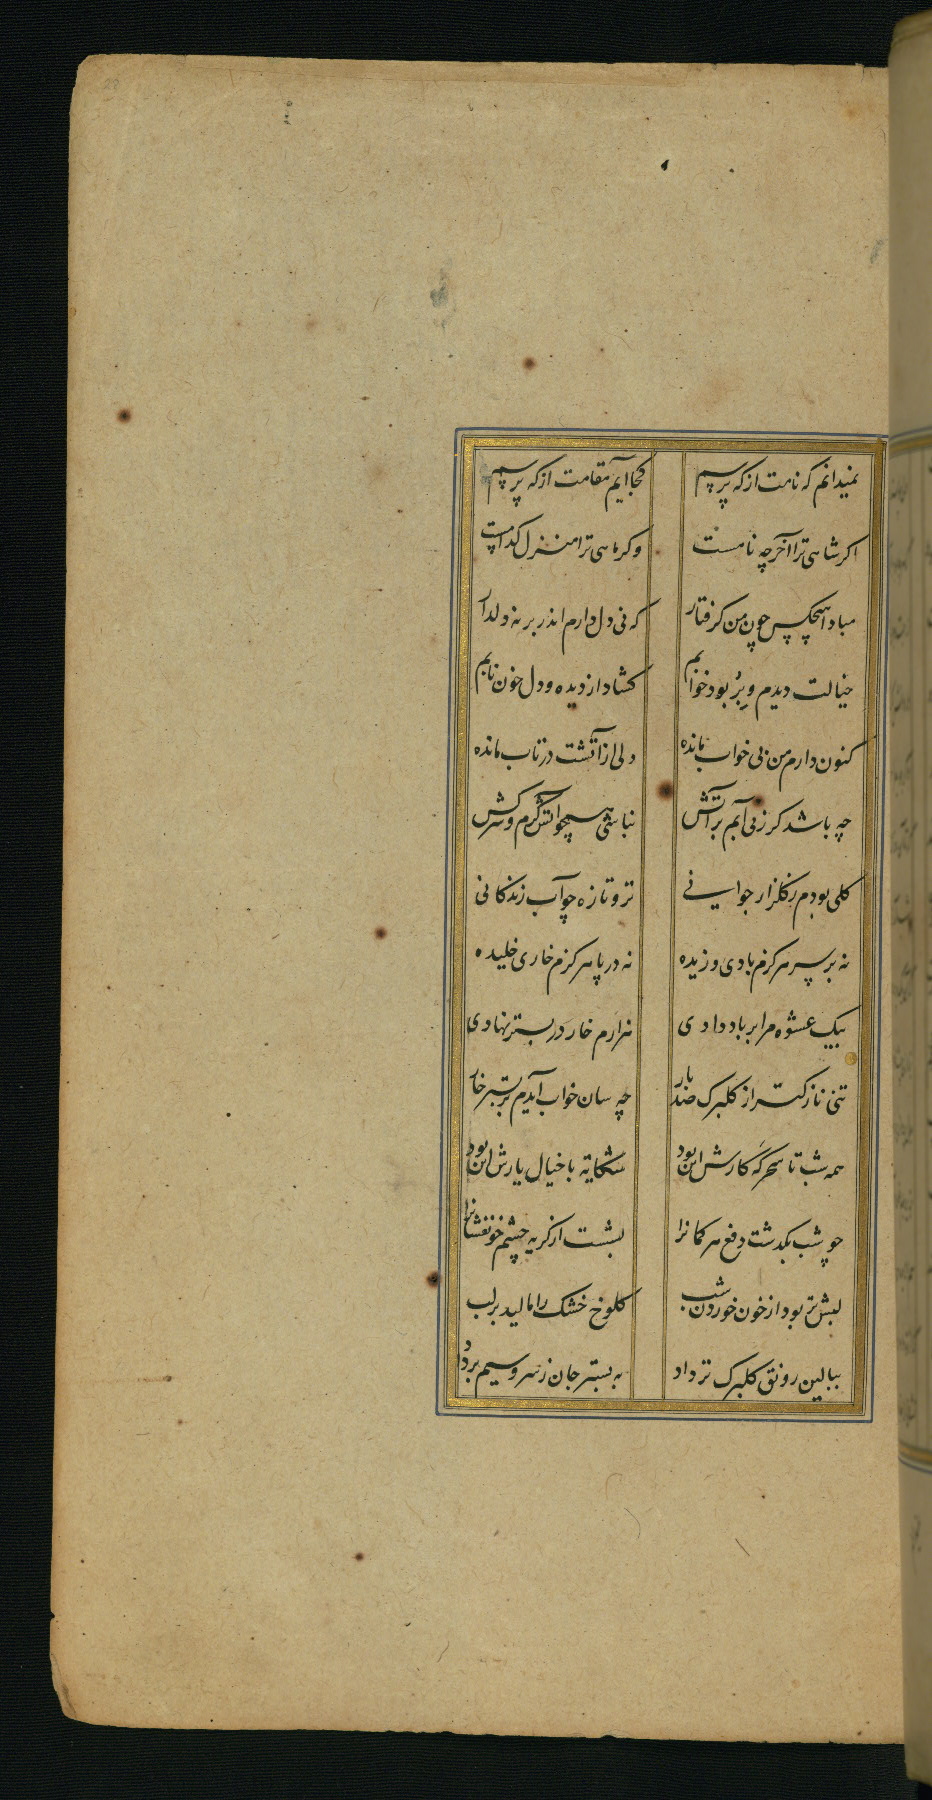 نمیدانم که نامت از که پرسم کجا ایم مقامت از که پرسم
اکر شاهی ترا آخر چه نامست وکر ماهی ترا منزل کدامست
مبادا هیچکس چون من کرفتار که نی دل دارم اندر بر نه دلدار
خیالت دیدم و بربود خوابم کشاد از دیده و دل خون نابم
کنون دارم من بی خواب مانده دلی از آتشت در تاب مانده
چه باشد کر زنی آبم بر آتش نباشی همچو اتش کرم و سرکش
کلی بودم ز کلزار جوانی تر و تازه چو آب زندکانی
نه بر سر هرکزم بادی وزیده نه در پا هرکزم خاری خلیده
بیک عشوه مرا بر باد دادی هزارم خار در بستر نهادی
تنی نازکتر از کلبرک صد بار چه سان خواب آیدم بر بستر خار
همه شب تا سحرکه کارش این بود شکایه با خیال یارش این بود
چو شب بکذشت دفع هر کمانرا بشست از کریه چشم خونفشانرا
لبش تر بود از خون خوردن شب کلوخ خشک را مالید بر لب
ببالین رونق کلبرک تر داد به بستر جان ز سرو سیم بر داد